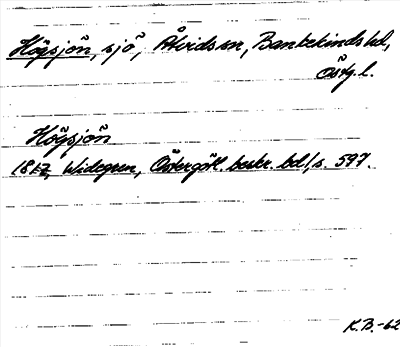 Högsjön, sjö, Åtvids sn, Bankekinds hd,
Östg. l.
Högsjön
1817, Widegren, Östergötl. beskr. bd 1, s. 597.
K.B.-62